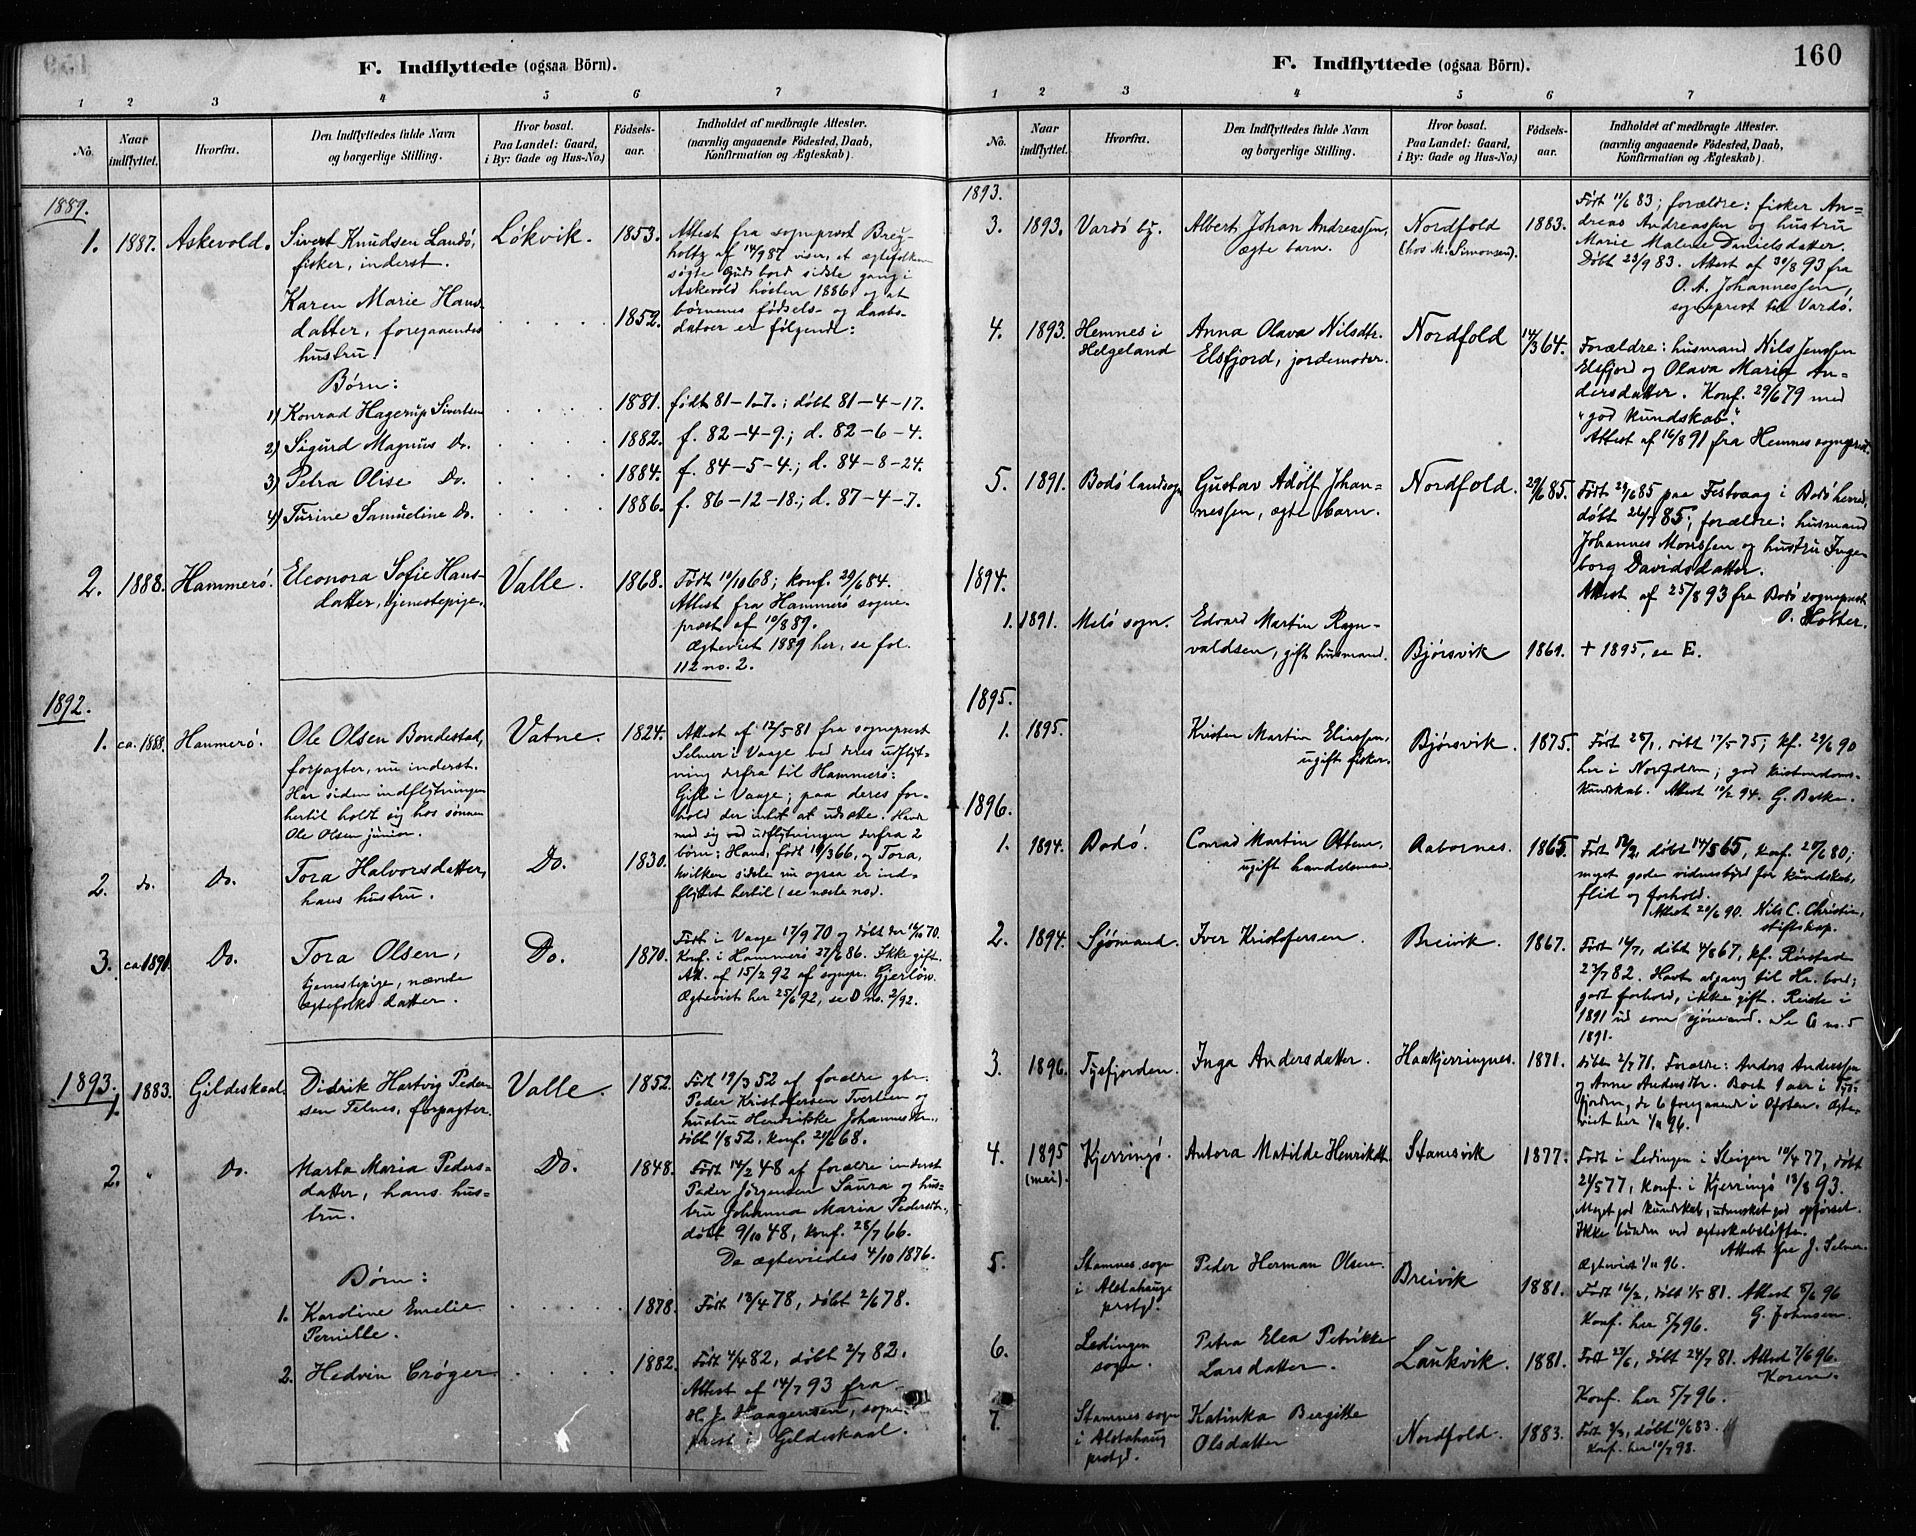 F. Indflyttede (ogsaa Börn).
1 2 3 4 5 6 7
No.
Naar indflyttet.
Hvorfra.
Den Indflyttedes fulde Navn og borgerlige Stilling.
Hvor bosat. Paa Landet: Gaard, i By: Gade og Hus-No.)
Fødsels-aar.
Indholdet af medbragte Attester. (navnlig angaaende Fødested, Daab, Konfirmation og Ægteskab).
1889.
1. 1887. Askevold. Sivert Knudsen Landö, Lökvik. 1853. Attest fra sogneprest
fisker, inderst. af 14/9 87 viser, at ægtefolkene
søgte Guds bord sidste gang i
Askevold høsten 1886 og at
Karen Marie Hans- 1852. børnenes fødsels- og daabs-
datter, foregaaendes datoer er følgende:
hustru.
Børn:
1) Konrad Hagerup Sivertsen 1881. født 81-1-7.; døbt 81-4-17.
2) Sigurd Magnus Do. 1882. f. 82-4-9.; d. 82-6-4.
3) Petra Olise Do. 1884. f. 84-5-4.; d. 84-8-24.
4) Turine Samueline Do. 1886. f. 86-12-18.; d. 87-4-7.
2. 1888. Hammerö. Eleonora Sofie Hans- Valle. 1868. Født 10/10 68; konf. 29/6 84.
datter, tjenestepige. Attest fra Hammerö sogne-
prest af 10/8 89.
Ægteviet 1889 her, se fol.
112 no. 2.
1892.
1. ca. 1888. Hammerö. Ole Olsen Bondestad, Vatne. 1824. Attest af 12/5 81 fra sogneprest
forpagter, nu inderst. Selmer i Vaage ved deres udflyt-
Har siden indflytningen ning derfra til Hammerö:
hertil holdt sig hos sønnen Gift i Vaage; paa deres for-
Ole Olsen junior. hold der intet at udsætte. Havde
med sig ved udflytningen derfra 2
2. do. Do. Tora Halvorsdatter, Do. 1830. børn: Hans, født 19/3 66, og Tora,
hans hustru. hvilken sidste nu ogsaa er ind-
flyttet hertil (se næste no).
3. ca 1891. Do. Tora Olsen, Do. 1870. Født i Vaage 17/9 70 og døbt der 16/10 70.
tjenestepige, nævnte Konf. i Hammerö 27/6 86. Ikke gift.
ægtefolks datter. Att. af 15/2 92 af sognepr. Gjerlöw.
Ægteviet her 25/6 92, se D no. 2/92.
1893.
1. 1883. Gildeskaal Didrik Hartvig Peder- Valle. 1852. Født 19/3 52 af forældre gbr.
sen Telnes, forpagter. Peder Kristofersen Tverteen og
hustru Henrikke Johannesdtr.,
døbt 1/8 52. konf. 21/6 68.
2. " Do. Marta Maria Peders- Do. 1848. Født 14/2 48 af forældre inderst
datter, hans hus- Peder Jörgensen Saura og hus-
tru. tru Johanna Maria Pedersdtr.,
døbt 9/10 48, konf. 28/7 66.
De ægteviedes 4/10 1876.
Børn:
1. Karoline Emelie 1878. Født 13/4 78, døbt 2/6 78.
Pernille.
2. Hedvin Cröger 1882. Født 4/4 82, døbt 2/7 82.
Attest af 14/7 93 fra
H. J. Haagensen, sogne-
prest i Gildeskaal.
160
F. Indflyttede (ogsaa Börn).
1 2 3 4 5 6 7
No.
Naar indflyttet.
Hvorfra.
Den Indflyttedes fulde Navn og borgerlige Stilling.
Hvor bosat. Paa Landet: Gaard, i By: Gade og Hus-No.)
Fødsels-aar.
Indholdet af medbragte Attester. (navnlig angaaende Fødested, Daab, Konfirmation og Ægteskab).
1893.
3. 1893. Vardö by. Albert Johan Andreassen, Nordfold 1883. Født 11/6 83; forældre: fisker An-
ægte barn. (hos M. Simonsen). dreas Andreassen og hustru
Marie Malene Danielsdatter.
Døbt 23/9 83. Attest af 30/8 93 fra
O. A. Johannessen,
sogneprest til Vardö.
4. 1893. Hemnes i Anna Olava Nilsdtr. Nordfold 14/3 64. Forældre: husmand Nils Jenssen
Helgeland Elsfjord, jordemoder. Elsfjord og Olava Maria An-
dersdatter. Konf. 29/6 79 med
"god kundskab".
Attest af 16/8 91 fra Hemnes sogneprest.
5. 1891. Bodö landsogn Gustav Adolf Johan- Nordfold. 29/6 85. Født 29/6 85 paa Festvaag i Bodö herred,
nessen, ægte barn. døbt 26/7 85; forældre: husmand
Johannes Monssen og hustru Inge-
borg Davidsdatter.
Attest af 25/8 93 fra Bodö sogneprest
O. Holter.
1894.
1. 1891. Melö sogn. Edvard Martin Ragn-
valdsen, gift husmand. Bjørsvik 1861. + 1895, se E.
1895.
1. 1895. Kristen Martin Eliassen, Bjørsvik. 1875. Født 25/1, døbt 17/5 75; kf. 22/6 90
ugift fisker. her i Norfolden; god kristendoms-
kundskab. Attest 10/2 94. G. Balke.
1896.
1. 1894. Bodö. Conrad Martin Ottesen, 1865. Født 12/2, døbt 14/5 65, konf. 20/6 80;
ugift handelsmand meget gode vidnesbyrd for kundskab,
flid og forhold.
Attest 20/6 90. Nils C. Christie,
stiftskap.
2. 1894. Sjömand. Iver Kristofersen. Breivik. 1867. Født 16/7, døbt 4/8 67, kf. Rørstad
23/7 82. Havt adgang til Hr. bord;
godt forhold, ikke gift. Reiste i
1891 ud som sjömand. Se G no. 5
1891.
3. 1896. Tysfjorden. Inga Andersdatter. Haakjerringnes. 1871. Døbt 2/7 71. Forældre: Anders Andersen
og Anne Andersdtr. Boet 9 aar i Tys-
fjorden, de 6 foregaaende i Ofoten. Ægte-
viet her 1/11 96.
4. 1895 Kjerringö. Antora Matilde Henriksdt. Stansvik 1877. Født i Ledingen i Steigen 10/4 77, døbt
(mai). 21/5 77, konf. i Kjerringö 13/8 93.
Meget god kundskab, udmerket god opførsel.
Ikke bunden ved ægteskabsløfte.
Attest fra J. Selmer.
Ægteviet 1/11 96.
5. Stamnes sogn Peder Herman Olsen Breivik 1881. Født 16/2, døbt 1/5 81. Attest 8/6 96
i Alstahaugs G. Johnsen.
prstgd. Konf. her 5/7 96.
6. Ledingen Petra Elea Petrikke Laukvik. 1881. Født 23/6, døbt 24/7 81. Attest 7/6 96.
sogn. Larsdatter. Koren.
Konf. her 5/7 96.
7. Stamnes sogn Katinka Bergitte Nordfold. 1883. Født 3/3, døbt 10/6 83.
i Alstahaug Olsdatter Konf. her 10/7 98.
prstgd.